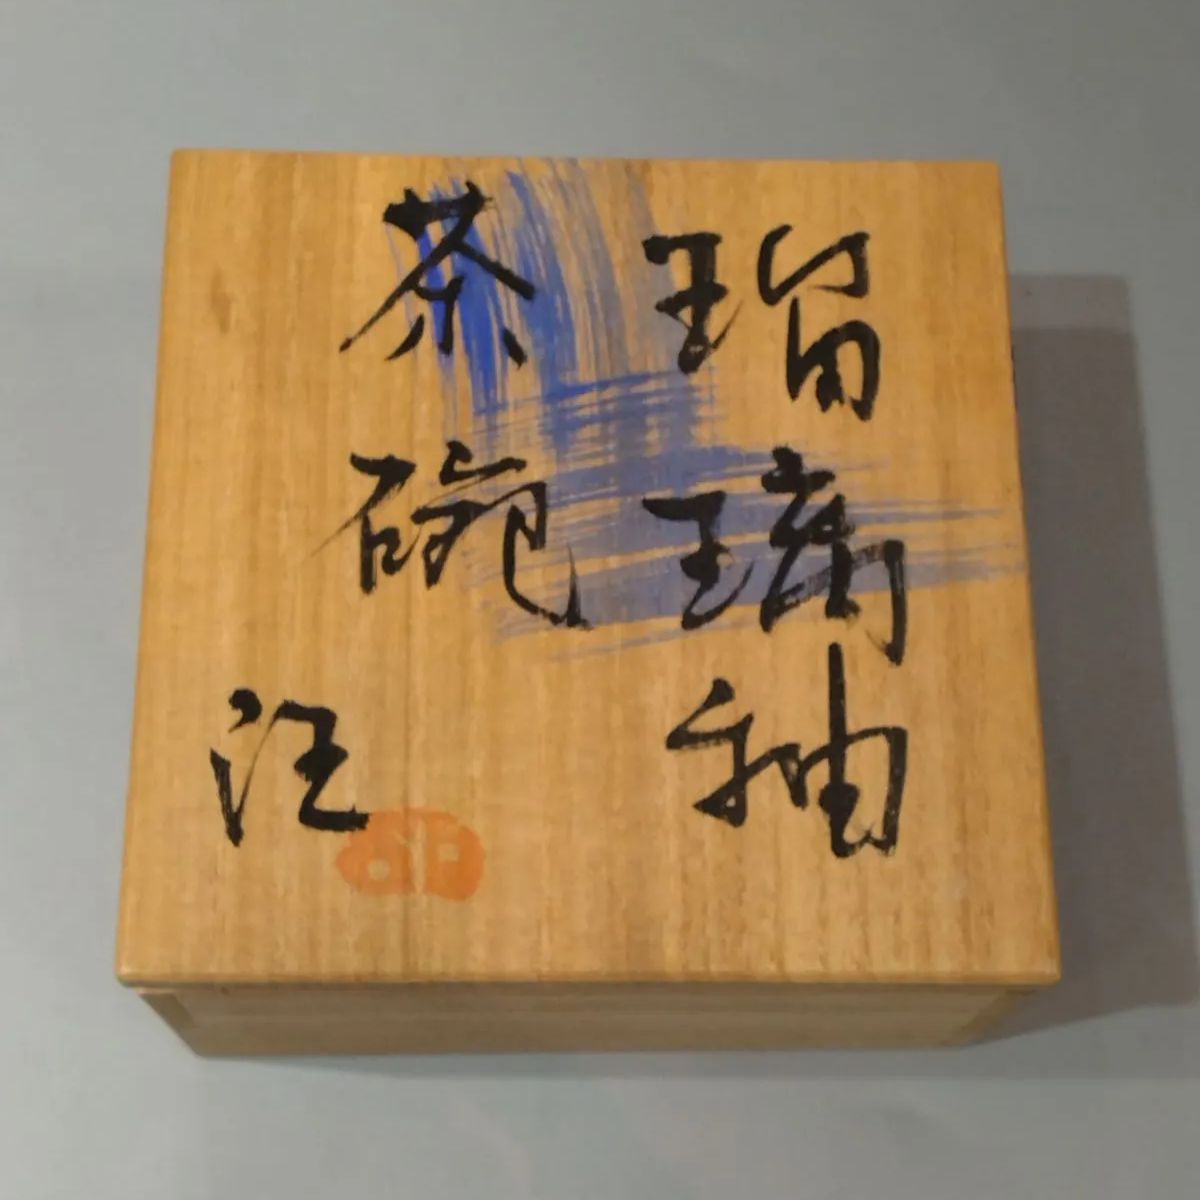 瑠璃釉
茶碗
汪